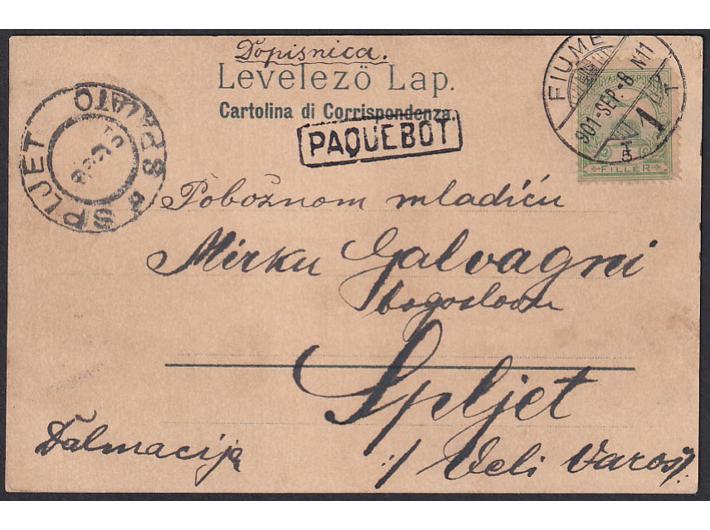 Dopisnica.
Levelező Lap.
Cartolina di Corrispondenza.
PAQUEBOT
FIUME
901-SEP.-8 N11
FILLER
SPLJET SPALATO
Pobožnom mladiću
Mirku Galvagni
bogoslovu
Spljet
Dalmacija
/ Veli Varoš /